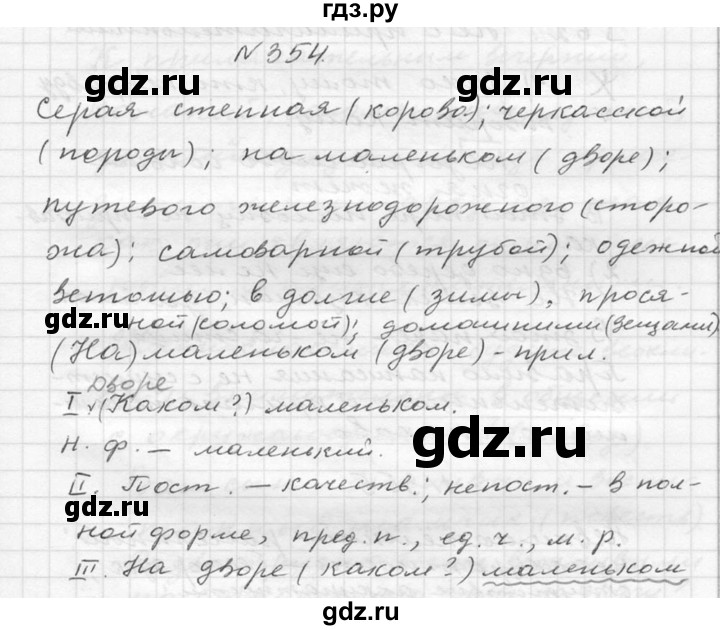 гдз.ру
N 354.
gdz.ru gdz.ru
Серая степная (корова); черкасской
(породы); на маленьком (дворе);
путевого железнодорожного (сторо-
жа); самоварной (трубой); одежной
ветошью; в долгие (зимы), прося-
gdz.ru
ной (соломой); домашними (вещами)
(На) маленьком (дворе) - прил.
Дворе
I. (Каком?) маленьком.
gdz.ru
Н. ф. - маленький.
II. Пост. - качеств.; непост. - в пол-
gdz.ru
ной форме, пред. п., ед. ч., м. р.
III. На дворе (каком?) маленьком
gdz.ru gdz.ru